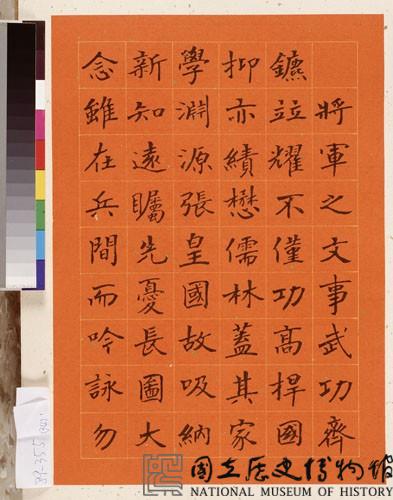 將軍之文事武功齊
鑣竝耀不僅功高捍國
抑亦績懋儒林蓋其家
學淵源張皇國故吸納
新知遠矚先憂長圖大
念雖在兵間而吟詠勿
國立歷史博物館
NATIONAL MUSEUM OF HISTORY